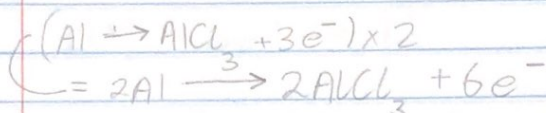 (Al → AlCl₃ + 3e⁻) × 2
= 2Al → 2AlCl₃ + 6e⁻